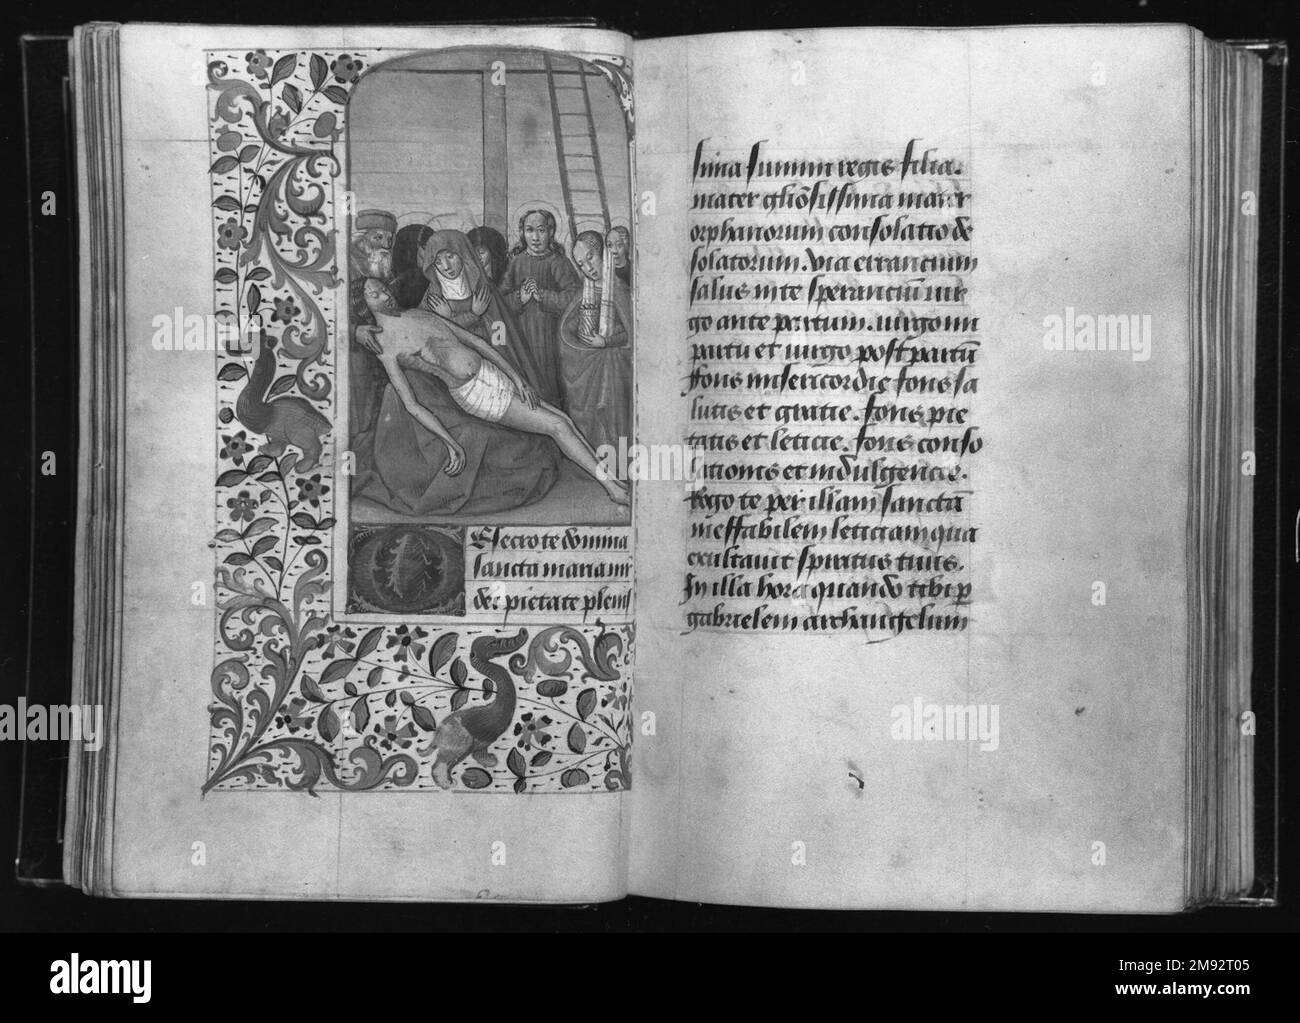 Obsecro te domina
sancta maria m̄
der pietate plenis
sima summi regis filia.
mater glīosissima mater
orphanorum consolatio de
solatorum. via errancium
salus in te sperancium vir
go ante partum. virgo in
partu et virgo post partū
ffons misericordie fons sa
lutis et gratie. fons pie
tatis et leticie. fons conso
lationis et indulgencie.
Rogo te per illam sanctā
ineffabilem leticiam qua
exultavit spiritus tuus.
In illa hora quando tibi p̄
gabrielem archangelum
alamy
alamy
Image ID: 2M92T05
www.alamy.com